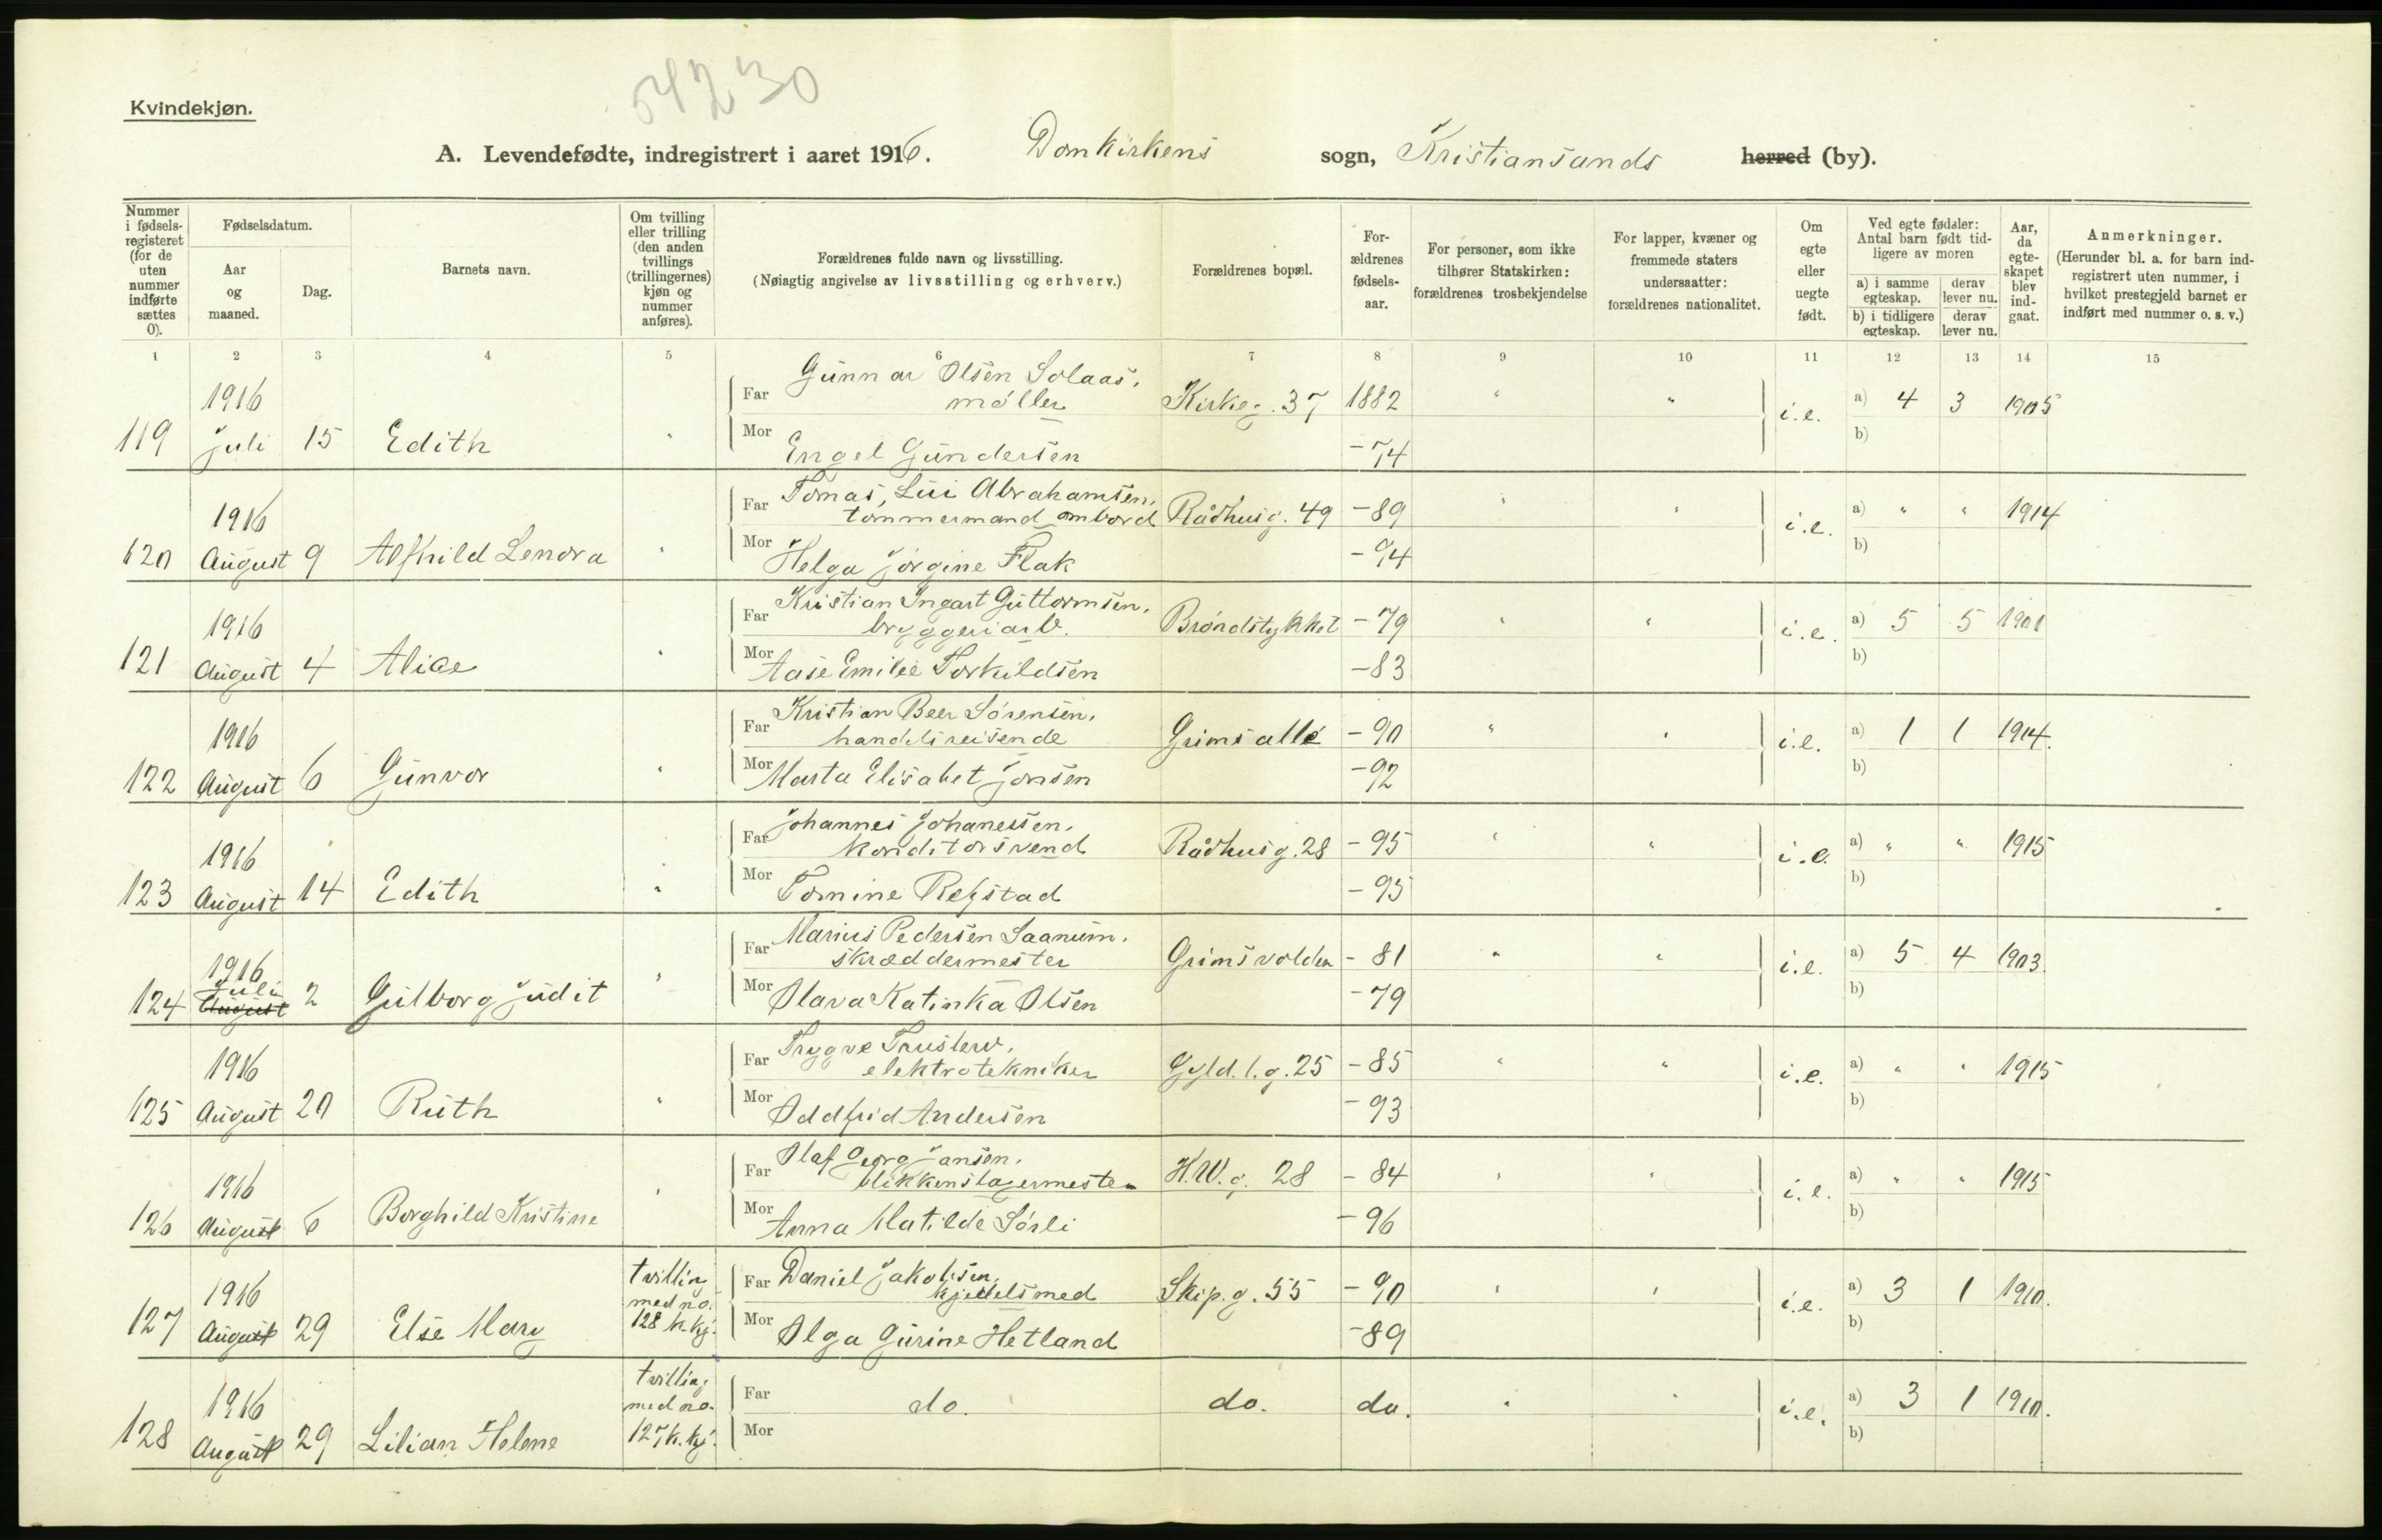 54230
Kvindekjøn.
A. Levendefødte, indregistrert i aaret 1916. Domkirkens sogn, Kristiansands herred (by).
Nummer i fødselsregisteret (for de uten nummer indførte sættes 0).
Fødselsdatum.
Aar og maaned.
Dag.
Barnets navn.
Om tvilling eller trilling (den anden tvillings (trillingernes) kjøn og nummer anføres).
Forældrenes fulde navn og livsstilling.
(Nøiagtig angivelse av livsstilling og erhverv.)
Forældrenes bopæl.
Forældrenes fødselsaar.
For personer, som ikke tilhører Statskirken: forældrenes trosbekjendelse
For lapper, kvæner og fremmede staters undersaatter: forældrenes nationalitet.
Om egte eller uegte født.
Ved egte fødsler: Antal barn født tidligere av moren
a) i samme egteskap. derav lever nu.
b) i tidligere egteskap. derav lever nu.
Aar, da egteskapet blev indgaat.
Anmerkninger.
(Herunder bl. a. for barn indregistrert uten nummer, i hvilket prestegjeld barnet er indført med nummer o. s. v.)
1 2 3 4 5 6 7 8 9 10 11 12 13 14 15
119 1916 Juli 15 Edith "
Far Gunnar Olsen Solaas, møller Kirkeg. 37 1882 " " i.e. a) 4 3 1905
Mor Engel Gundersen -74 b)
120 1916 August 9 Alfhild Lenora "
Far Tomas Lui Abrahamsen, tømmermand ombord Rådhusg. 49 -89 " " i.e. a) " " 1914
Mor Helga Jørgine Flak -94 b)
121 1916 August 4 Alice "
Far Kristian Ingart Guttormsen, bryggeriarb. Brøndstykket -79 " " i.e. a) 5 5 1901
Mor Aase Emilie Torkildsen -83 b)
122 1916 August 6 Gunvor "
Far Kristian Beer Sørensen, handelsreisende Grimsallé -90 " " i.e. a) 1 1 1914.
Mor Marta Elisabet Jonsen -92 b)
123 1916 August 14 Edith "
Far Johannes Johanessen, konditorsvend Rådhusg. 28 -95 " " i.e. a) " " 1915
Mor Tomine Refstad -95 b)
124 1916 Juli August 2 Gulborg Judit "
Far Marius Pedersen Saanum, skræddermester Grimsvolden -81 " " i.e. a) 5 4 1903
Mor Olava Katinka Olsen -79 b)
125 1916 August 20 Ruth "
Far Trygve Truslew, elektrotekniker Gyld.l.g. 25 -85 " " i.e. a) " " 1915
Mor Oddfrid Andersen -93 b)
126 1916 August 6 Borghild Kristine "
Far Olaf Georg Jansen, blikkenslagermester H.W.g. 28 -84 " " i.e. a) " " 1915
Mor Anna Matilde Sørli -96 b)
127 1916 August 29 Else Mary tvilling med no. 128 k.kj.
Far Daniel Jakobsen, kjedelsmed Skip.g. 55 -90 " " i.e. a) 3 1 1910.
Mor Olga Gurine Hetland -89 b)
128 1916 August 29 Lilian Helene tvilling med no. 127 k.kj.
Far do. do. do. " " i.e. a) 3 1 1910.
Mor b)